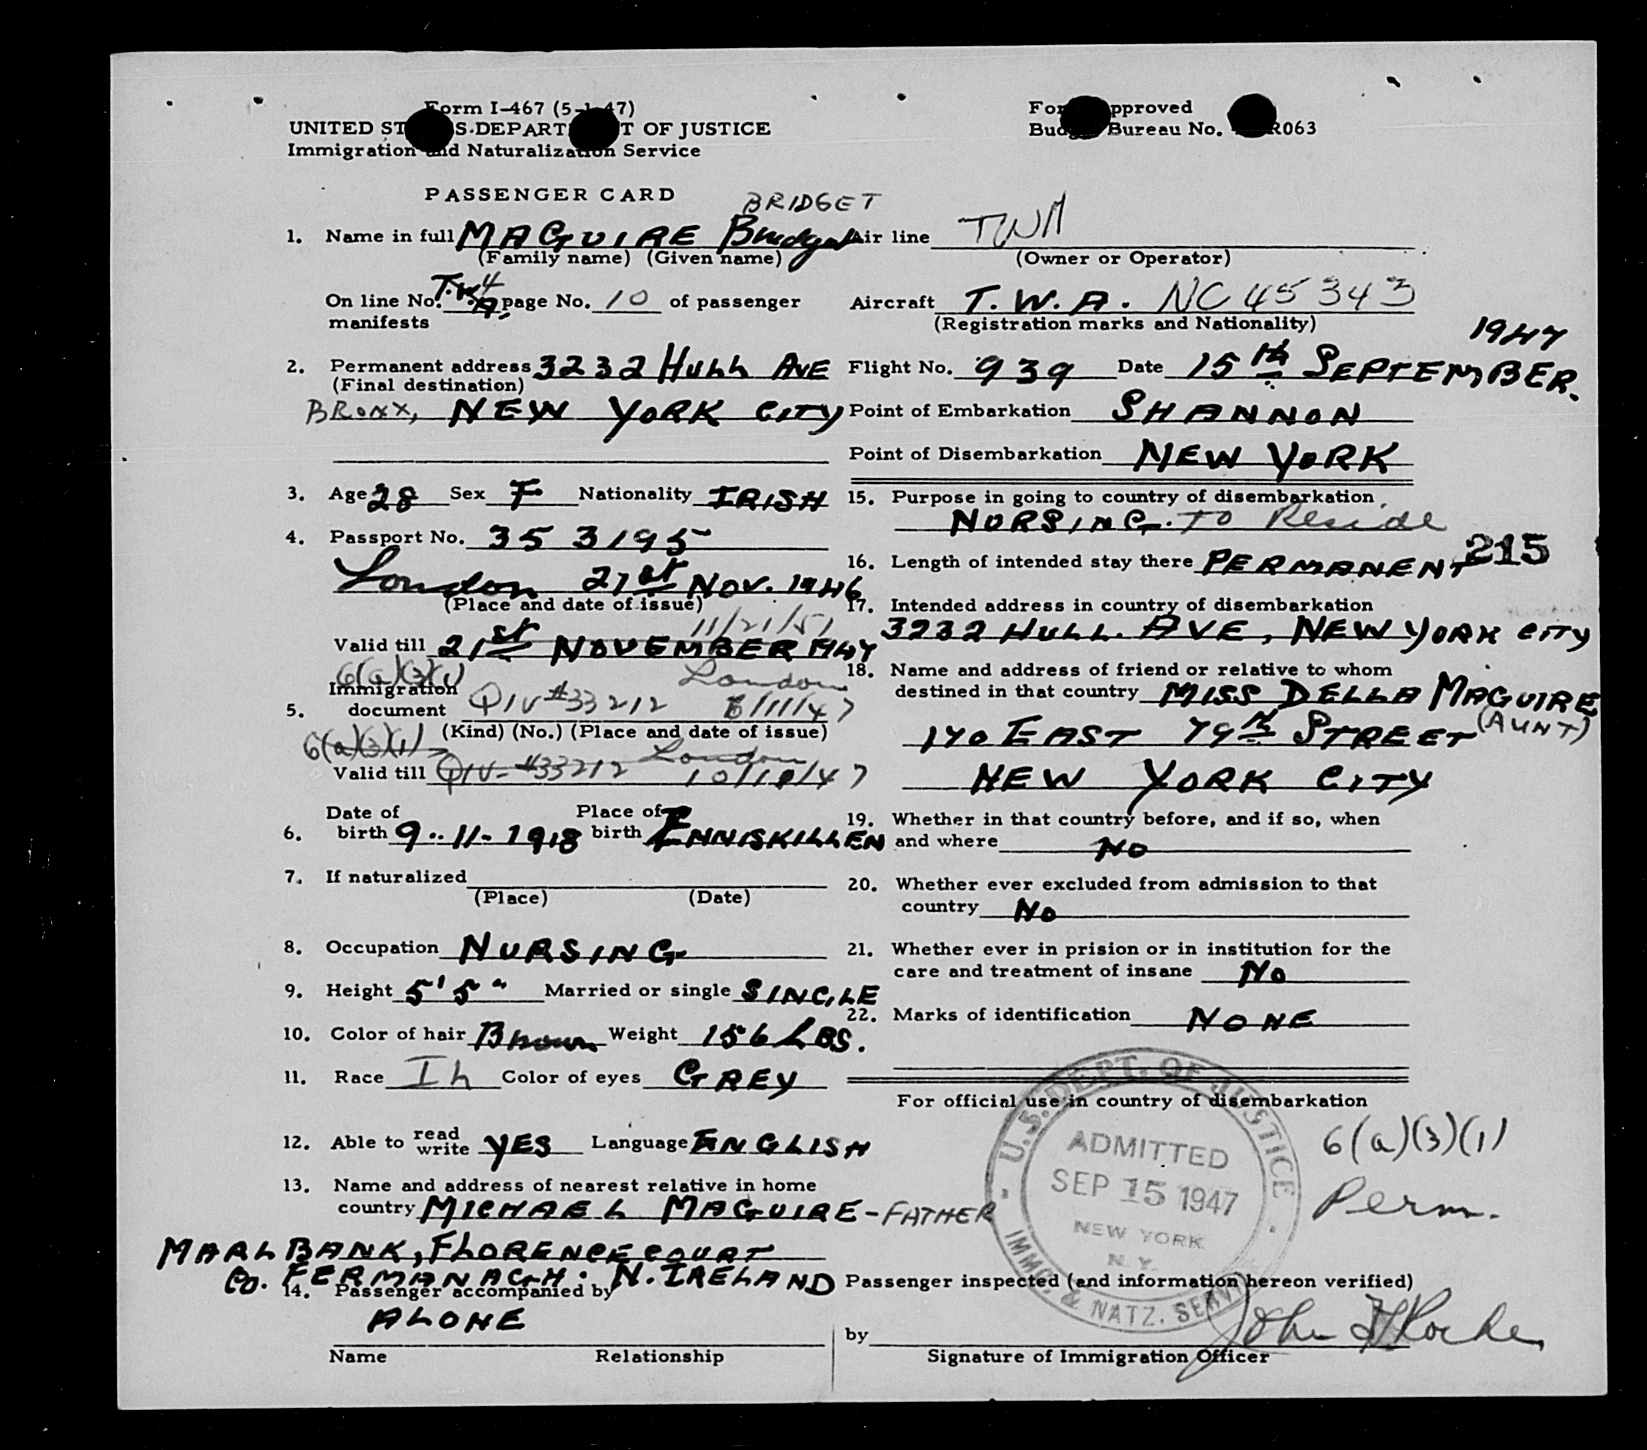 Form I-467 (5-1-47)
UNITED ST S-DEPART T OF JUSTICE
Immigration and Naturalization Service
PASSENGER CARD
BRIDGET
1. Name in full MAGUIRE Bridget
(Family name) (Given name)
On line No. 4 T.W.A. page No. 10 of passenger
manifests
2. Permanent address 3232 HULL AVE
(Final destination)
BRONX, NEW YORK CITY
3. Age 28 Sex F. Nationality IRISH
4. Passport No. 353195
London 21st NOV. 1946
(Place and date of issue)
11/21/51
Valid till 21st NOVEMBER 1947
6(a)(3)(1) London
Immigration
5. document QIV #33212 8/11/47
(Kind) (No.) (Place and date of issue)
6(a)(3)(1) London
Valid till QIV-#33212 10/10/47
Date of Place of
6. birth 9-11-1918 birth ENNISKILLEN
7. If naturalized
(Place) (Date)
8. Occupation NURSING
9. Height 5'5" Married or single SINGLE
10. Color of hair Brown Weight 156 LBS.
11. Race Ir Color of eyes GREY
12. Able to read write YES Language ENGLISH
13. Name and address of nearest relative in home
country MICHAEL MAGUIRE - FATHER
MARLBANK, FLORENCECOURT
Co. FERMANAGH. N. IRELAND
14. Passenger accompanied by
ALONE
Name Relationship
For pproved
Bud Bureau No. R063
Air line TWA
(Owner or Operator)
Aircraft T.W.A. NC 45343
(Registration marks and Nationality)
1947
Flight No. 939 Date 15th SEPTEMBER.
Point of Embarkation SHANNON
Point of Disembarkation NEW YORK
15. Purpose in going to country of disembarkation
NURSING. To Reside
215
16. Length of intended stay there PERMANENT
17. Intended address in country of disembarkation
3232 HULL. AVE, NEW YORK CITY
18. Name and address of friend or relative to whom
destined in that country MISS DELLA MAGUIRE
170 EAST 79th STREET (AUNT)
NEW YORK CITY
19. Whether in that country before, and if so, when
and where NO
20. Whether ever excluded from admission to that
country No
21. Whether ever in prision or in institution for the
care and treatment of insane No
22. Marks of identification NONE
For official use in country of disembarkation
U.S. DEPT. OF JUSTICE
ADMITTED
SEP 15 1947
NEW YORK
N.Y.
IMMG. & NATZ. SERV.
6(a)(3)(1)
Perm.
Passenger inspected (and information hereon verified)
by John
Signature of Immigration Officer